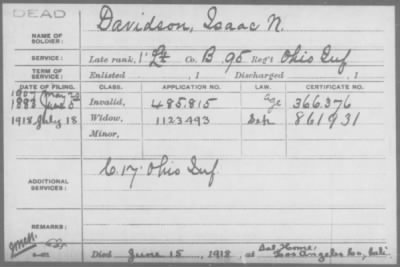 DEAD
NAME OF SOLDIER: Davidson, Isaac N.
SERVICE: Late rank, 1" Lt Co. B, 95 Reg't Ohio Inf
TERM OF SERVICE: Enlisted , 1 Discharged , 1
DATE OF FILING. CLASS. APPLICATION NO. LAW. CERTIFICATE NO.
1907 May
1883 June 5 Invalid, 485.815 Age 366.376
1918 July 18 Widow, 1123493 861931
Minor,
ADDITIONAL SERVICES: C. 17. Ohio Inf.
REMARKS:
Died June 15, 1918, at Sol. Home, Los Angeles Co, Cali